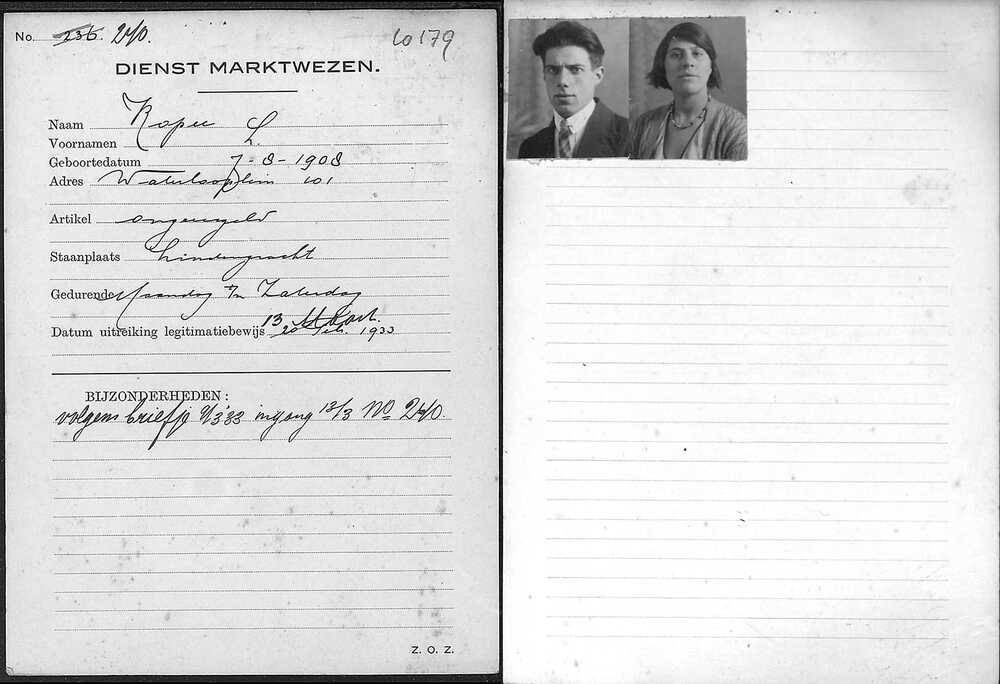 No. 236. 240.
10179
DIENST MARKTWEZEN.
Naam Koper
Voornamen L.
Geboortedatum 7-8-1908
Adres Waterlooplein 101
Artikel ongeregeld
Staanplaats Lindengracht
Gedurende Maandag t/m Zaterdag
13 Maart.
Datum uitreiking legitimatiebewijs 20 Feb. 1933
BIJZONDERHEDEN:
volgens briefje 9/3'33 ingang 13/3 No 240.
Z. O. Z.